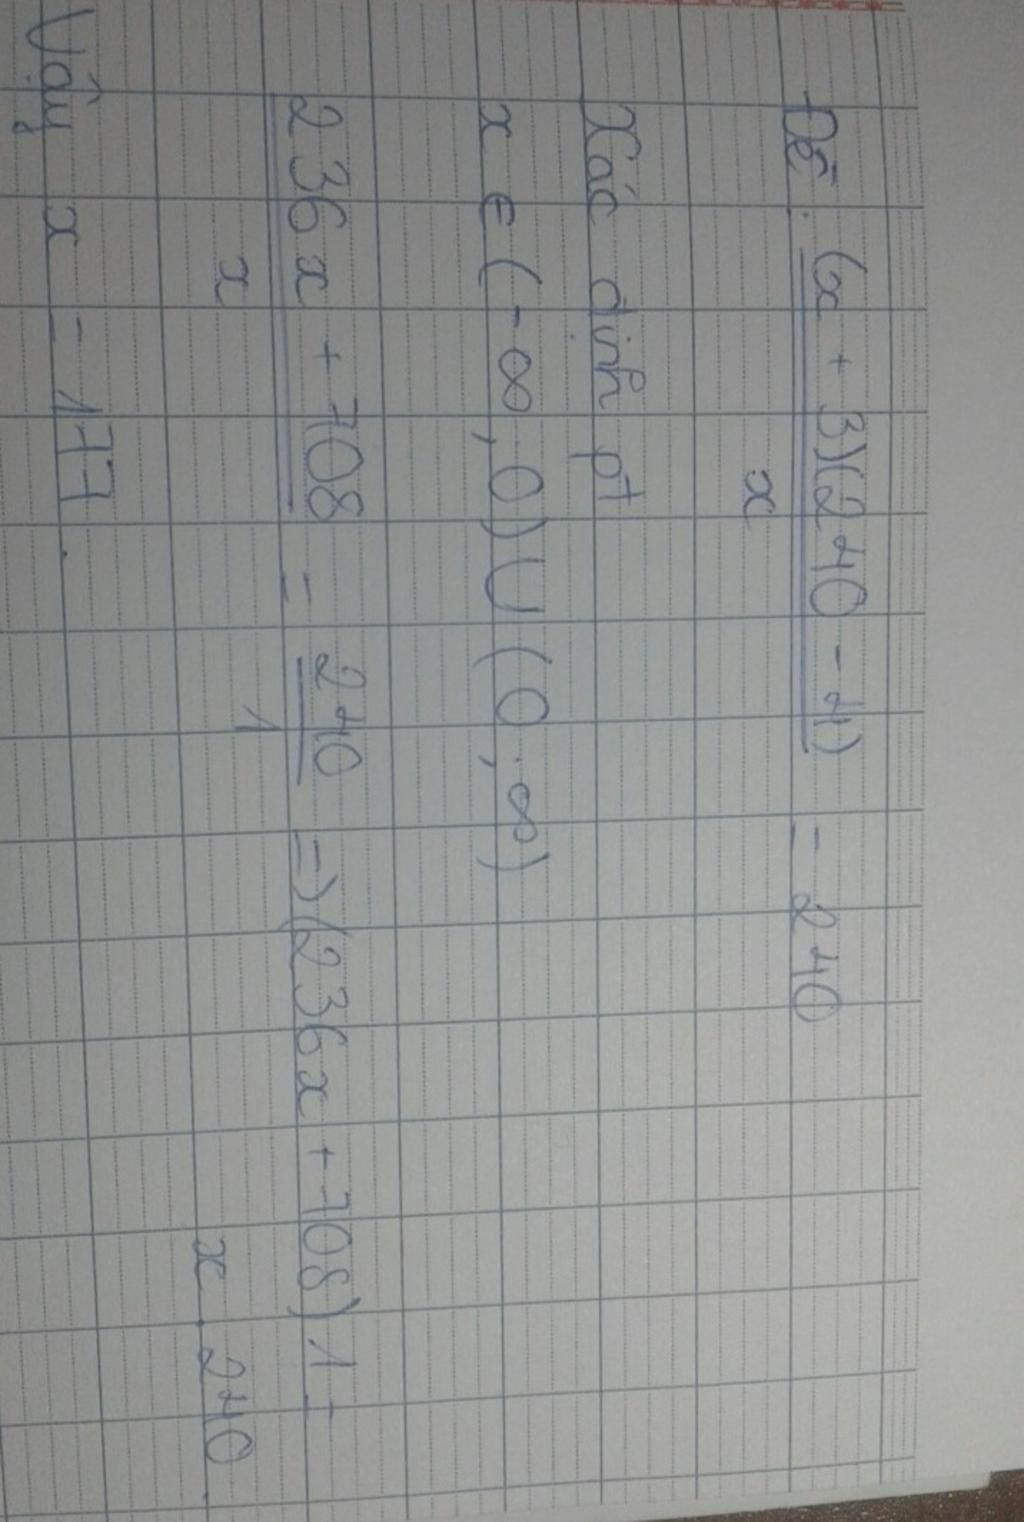 Đề: (x + 3)(240 - 4) = 240
x
Xác định pt
x ∈ (-∞, 0) U (0, ∞)
236x + 708 = 240 => (236x + 708) 1 =
x 1 x . 240
Vậy x = 177.